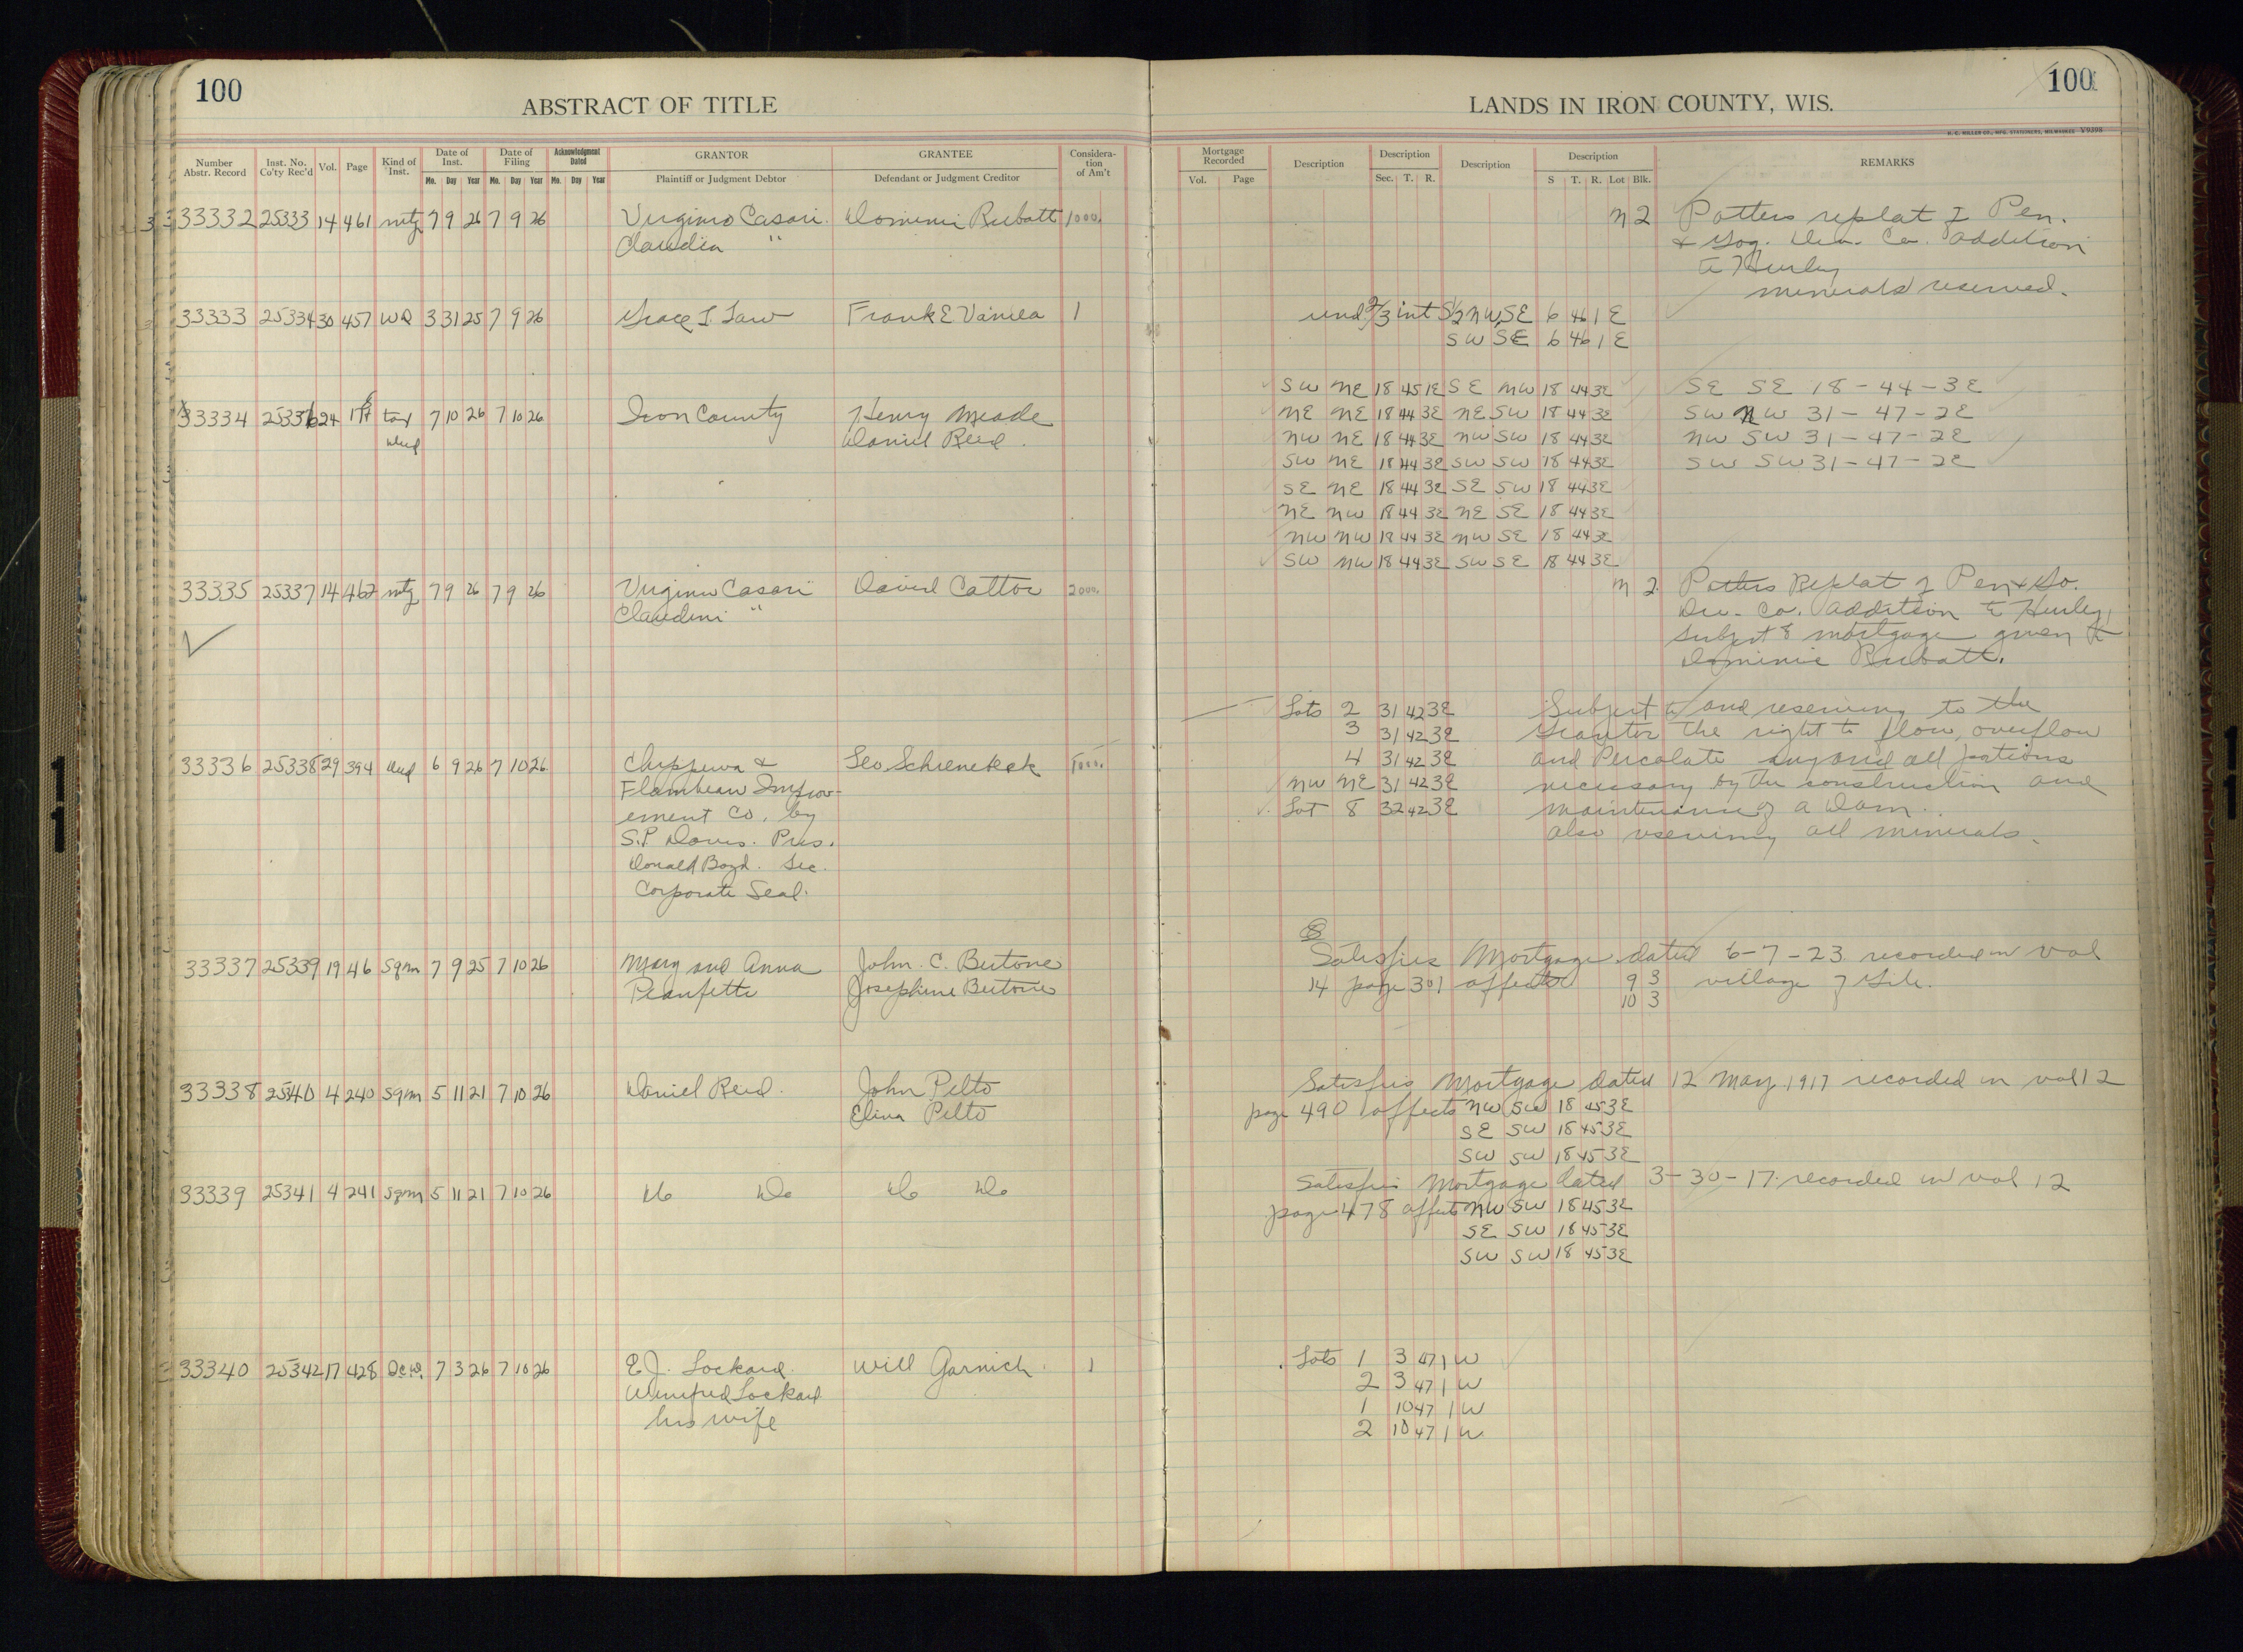 100
ABSTRACT OF TITLE
Number Abstr. Record Inst. No. Co'ty Rec'd Vol. Page Kind of Inst. Date of Inst. Date of Filing Acknowledgment Dated GRANTOR GRANTEE Considera-tion of Am't
Mo. Day Year Mo. Day Year Mo. Day Year Plaintiff or Judgment Debtor Defendant or Judgment Creditor
33332 25333 14 461 mtg 7 9 26 7 9 26 Virginio Casari Dominic Rubatt 1000.
Claudia "
33333 25334 30 457 WD 3 31 25 7 9 26 Grace I. Law Frank E Vaniea 1
33334 25336 24 tax 7 10 26 7 10 26 Iron County Henry Meade
deed Daniel Reid.
33335 25337 14 462 mtg 7 9 26 7 9 26 Virginio Casari David Cattoi 2000.
Claudini "
33336 25338 29 394 deed 6 9 26 7 10 26 Chippewa & Leo Schienebeck 1000.
Flambeau Improv-
ement Co, by
S.P. Davis. Pres.
Donald Boyd. Sec.
Corporate Seal.
33337 25339 19 46 Sqm 7 9 25 7 10 26 Mary and Anna John. C. Bertone
Pianfetti Josephine Bertone
33338 25340 4 240 Sqm 5 11 21 7 10 26 Daniel Reid. John Pelto
Elina Pelto
33339 25341 4 241 Sqm 5 11 21 7 10 26 Do Do Do Do
33340 25342 17 428 QCD. 7 3 26 7 10 26 E.J. Lockard. Will Garnich. 1
Winnifred Lockard
his wife
100
LANDS IN IRON COUNTY, WIS.
H. C. MILLER CO., MFG. STATIONERS, MILWAUKEE V9398
Mortgage Recorded Description Description Description Description REMARKS
Vol. Page Sec. T. R. S T. R. Lot Blk.
n 2 Potters replat of Pen.
& Gog. Dev. Co. addition
to Hurley
minerals reserved.
und 2/3 int S1/2 NW SE 6 46 1 E
SW SE 6 46 1 E
SW NE 18 45 1E SE NW 18 44 3E SE SE 18-44-3E
NE NE 18 44 3E NE SW 18 44 3E SW NW 31-47-2E
NW NE 18 44 3E NW SW 18 44 3E NW SW 31-47-2E
SW NE 18 44 3E SW SW 18 44 3E SW SW 31-47-2E
SE NE 18 44 3E SE SW 18 44 3E
NE NW 18 44 3E NE SE 18 44 3E
NW NW 18 44 3E NW SE 18 44 3E
SW NW 18 44 3E SW SE 18 44 3E
n 2. Potters Replat of Pen & Go.
Dev. Co. addition to Hurley,
subject to mortgage given to
Dominic Rubatt.
Lots 2 31 42 3E Subject to and reserving to the
3 31 42 3E Grantor the right to flow, overflow
4 31 42 3E and Percolate any and all portions
NW NE 31 42 3E necessary by the construction and
Lot 8 32 42 3E maintenance of a Dam.
also reserving all minerals.
Satisfies Mortgage dated 6-7-23 recorded in Vol
14 page 301 affects 9 3 village of Gile.
10 3
Satisfies Mortgage dated 12 May 1917 recorded in vol 12
page 490 affects NW SW 18 45 3E
SE SW 18 45 3E
SW SW 18 45 3E
Satisfies Mortgage dated 3-30-17 recorded in vol 12
page 478 affects NW SW 18 45 3E
SE SW 18 45 3E
SW SW 18 45 3E
Lots 1 3 47 1 W
2 3 47 1 W
1 10 47 1 W
2 10 47 1 W